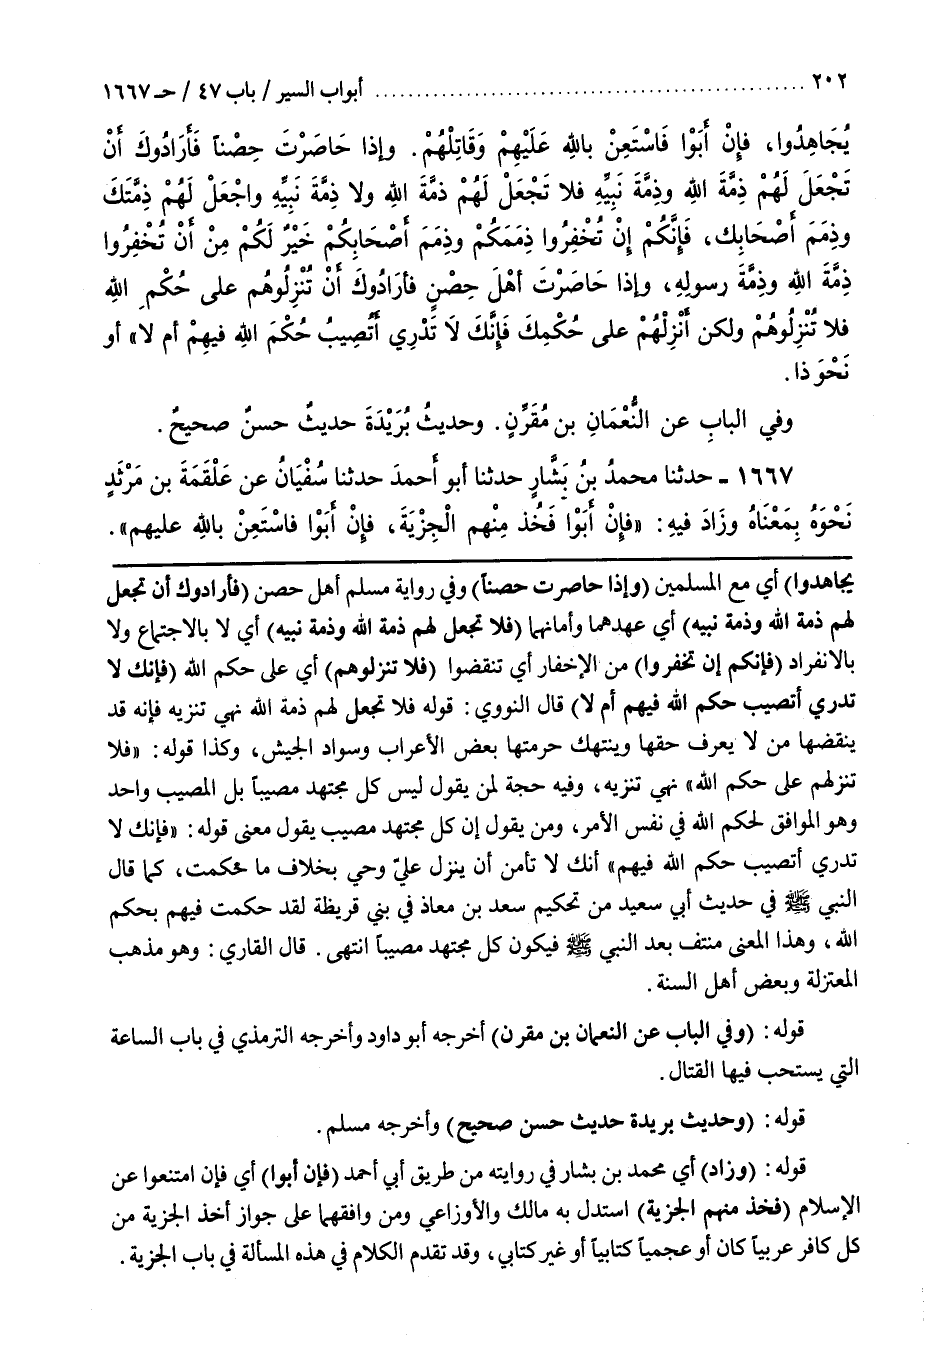 ٢٠٢ ........................................ أبواب السير / باب ٤٧ / حـ ١٦٦٧
يُجَاهِدُوا، فإِنْ أَبَوْا فَاسْتَعِنْ بالله عَلَيْهِمْ وَقَاتِلْهُمْ. وإذا حَاصَرْتَ حِصْناً فَأَرَادُوكَ أَنْ
تَجْعَلَ لَهُمْ ذِمَّةَ الله وذِمَّةَ نَبِيِّهِ فلا تَجْعَلْ لَهُمْ ذمَّةَ الله ولا ذِمَّةَ نَبِيِّهِ واجْعَلْ لَهُمْ ذِمَّتَكَ
وذِمَمَ أَصْحَابِك، فَإِنَّكُمْ إِنْ تُخْفِرُوا ذِمَمَكُمْ وذِمَمَ أَصْحَابِكُمْ خَيْرٌ لَكُمْ مِنْ أَنْ تُخْفِرُوا
ذِمَّةَ الله وذِمَّةَ رسولِهِ، وإذا حَاصَرْتَ أهْلَ حِصْنٍ فأرَادُوكَ أَنْ تُنْزِلُوهُم على حُكْمِ الله
فلا تُنْزِلُوهُمْ ولكن أَنْزِلْهُمْ على حُكْمِكَ فَإِنَّكَ لَا تَدْرِي أَتُصِيبُ حُكْمَ الله فيهِمْ أم لا» أو
نَحْوَ ذا.
وفي البابِ عن النُّعْمَانِ بن مُقَرِّنٍ. وحديثُ بُرَيْدَةَ حديثٌ حسنٌ صحيحٌ.
١٦٦٧ ـ حدثنا محمدُ بنُ بَشَّارٍ حدثنا أبو أَحمدَ حدثنا سُفْيَانُ عن عَلْقَمَةَ بن مَرْثَدٍ
نَحْوَهُ بِمَعْنَاهُ وزَادَ فيهِ: «فإِنْ أَبَوْا فَخُذ مِنْهم الْجِزْيَةَ، فإِنْ أَبَوْا فاسْتَعِنْ بالله عليهم».
يجاهدوا) أي مع المسلمين (وإذا حاصرت حصناً) وفي رواية مسلم أهل حصن (فأرادوك أن تجعل
لهم ذمة الله وذمة نبيه) أي عهدهما وأمانهما (فلا تجعل لهم ذمة الله وذمة نبيه) أي لا بالاجتماع ولا
بالانفراد (فإنكم إن تخفروا) من الإخفار أي تنقضوا (فلا تنزلوهم) أي على حكم الله (فإنك لا
تدري أتصيب حكم الله فيهم أم لا) قال النووي: قوله فلا تجعل لهم ذمة الله نهي تنزيه فإنه قد
ينقضها من لا يعرف حقها وينتهك حرمتها بعض الأعراب وسواد الجيش، وكذا قوله: «فلا
تنزلهم على حكم الله» نهي تنزيه، وفيه حجة لمن يقول ليس كل مجتهد مصيباً بل المصيب واحد
وهو الموافق لحكم الله في نفس الأمر، ومن يقول إن كل مجتهد مصيب يقول معنى قوله: «فإنك لا
تدري أتصيب حكم الله فيهم» أنك لا تأمن أن ينزل عليّ وحي بخلاف ما حكمت، كما قال
النبي ﷺ في حديث أبي سعيد من تحكيم سعد بن معاذ في بني قريظة لقد حكمت فيهم بحكم
الله، وهذا المعنى منتف بعد النبي ﷺ فيكون كل مجتهد مصيباً انتهى. قال القاري: وهو مذهب
المعتزلة وبعض أهل السنة.
قوله: (وفي الباب عن النعمان بن مقرن) أخرجه أبو داود وأخرجه الترمذي في باب الساعة
التي يستحب فيها القتال.
قوله: (وحديث بريدة حديث حسن صحيح) وأخرجه مسلم.
قوله: (وزاد) أي محمد بن بشار في روايته من طريق أبي أحمد (فإن أبوا) أي فإن امتنعوا عن
الإسلام (فخذ منهم الجزية) استدل به مالك والأوزاعي ومن وافقهما على جواز أخذ الجزية من
كل كافر عربياً كان أو عجمياً كتابياً أو غير كتابي، وقد تقدم الكلام في هذه المسألة في باب الجزية.